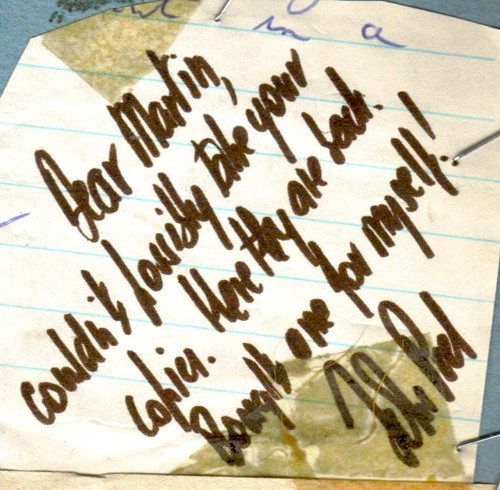 in a
Dear Martin,
couldn't possibly take your
copies. Here they are back.
Bought one for myself!